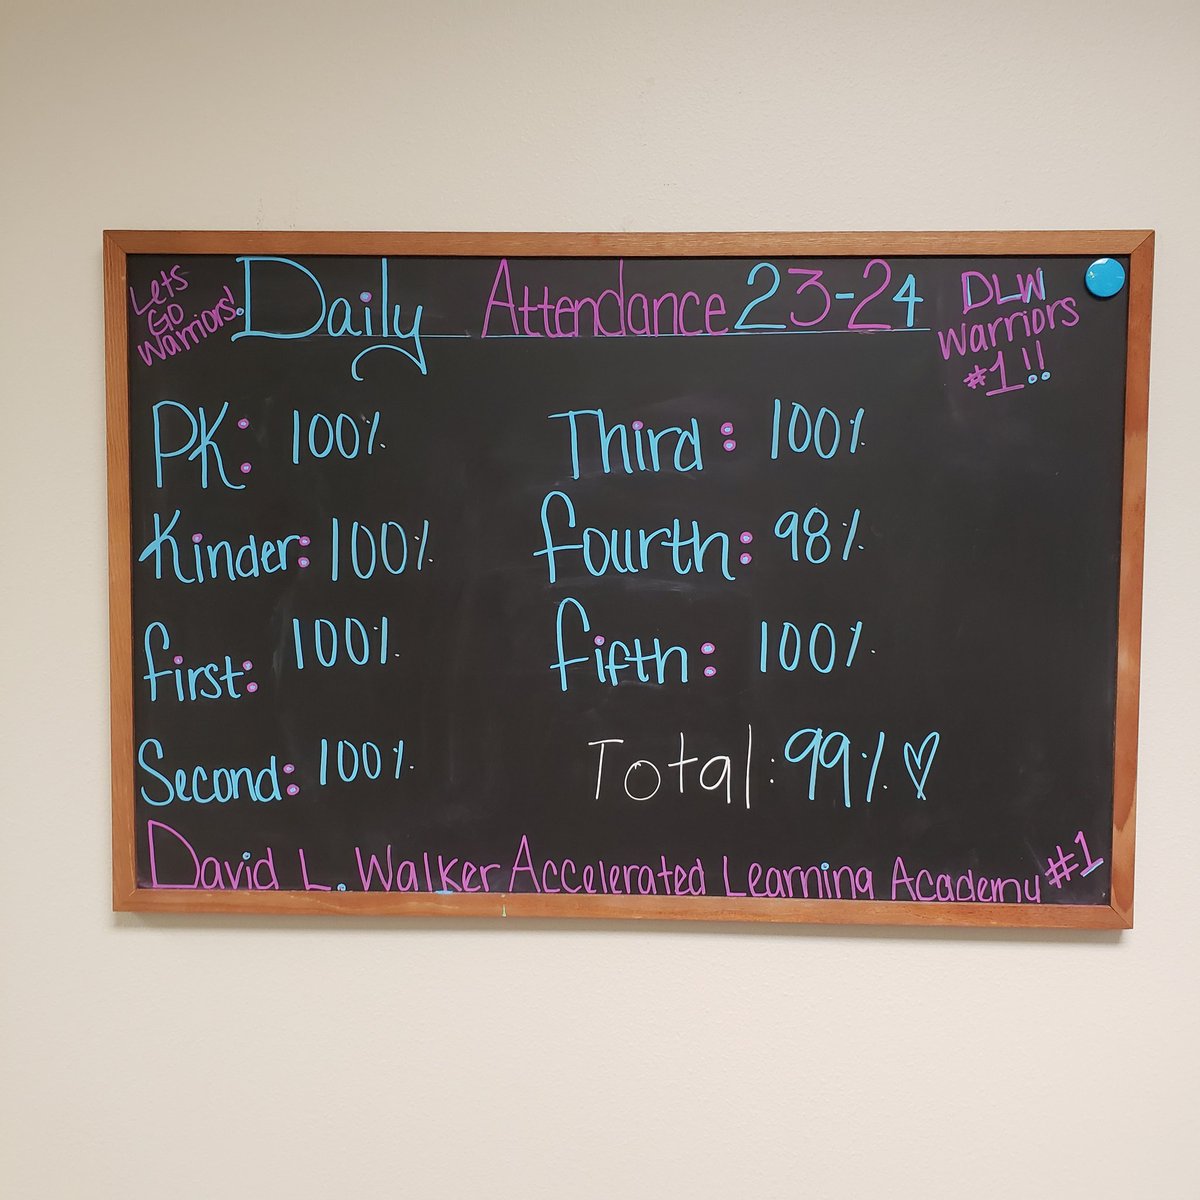 Lets
Go
Warriors!
Daily Attendance 23-24
DLW
Warriors
#1!!
PK: 100%
Kinder: 100%
first: 100%
Second: 100%
Third: 100%
fourth: 98%
fifth: 100%
Total: 99%
David L. Walker Accelerated Learning Academy #1